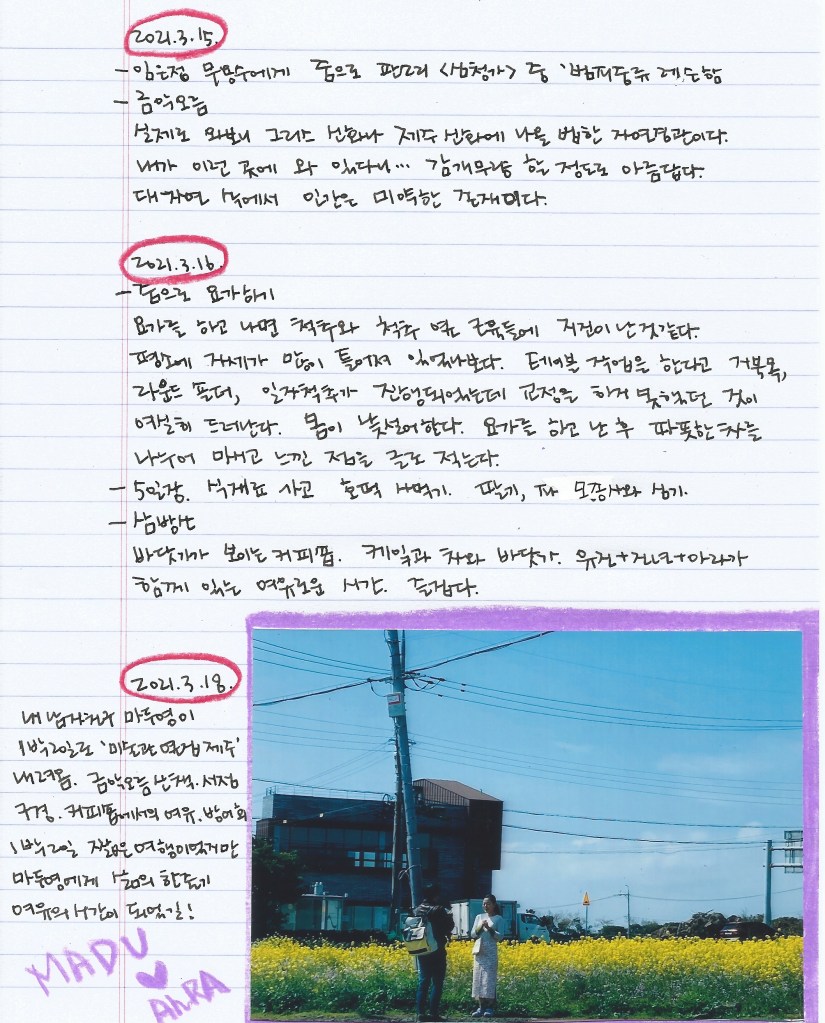 2021.3.15.
- 임은정 무형수에게 줌으로 판소리 <심청가> 중 '범피중류' 레슨함
- 금악오름
실제로 와보니 그리스 신화나 제주 신화에 나올 법한 자연경관이다.
내가 이런 곳에 와 있다니... 감개무량 할 정도로 아름답다.
대자연 속에서 인간은 미약한 존재이다.
2021.3.16.
- 줌으로 요가하기
요가를 하고 나면 척추와 척추 옆 근육들에 지진이 난 것 같다.
평소에 자세가 많이 틀어져 있었나보다. 테이블 작업을 한다고 거북목,
라운드 숄더, 일자척추가 진행되었는데 교정을 하지 못했던 것이
여실히 드러난다. 몸이 낯설어한다. 요가를 하고 난 후 따뜻한 차를
나누어 마시고 느낀 점을 글로 적는다.
- 5일장. 식재료 사고 호떡 사먹기. 딸기, 파 모종사와 심기.
- 산방산
바닷가가 보이는 커피숍. 케잌과 차와 바닷가. 유진+진년+아라가
함께 있는 여유로운 시간. 즐겁다.
2021.3.18.
내 남자친구 마두영이
1박2일로 '미노관 연접 제주'
내려옴. 금악오름 산책. 서점
구경. 커피숍에서의 여유. 방어회
1박2일 짧은 여행이었지만
마두영에게 삶의 한도기
여유의 시간이 되었길!
MADU
AhRA